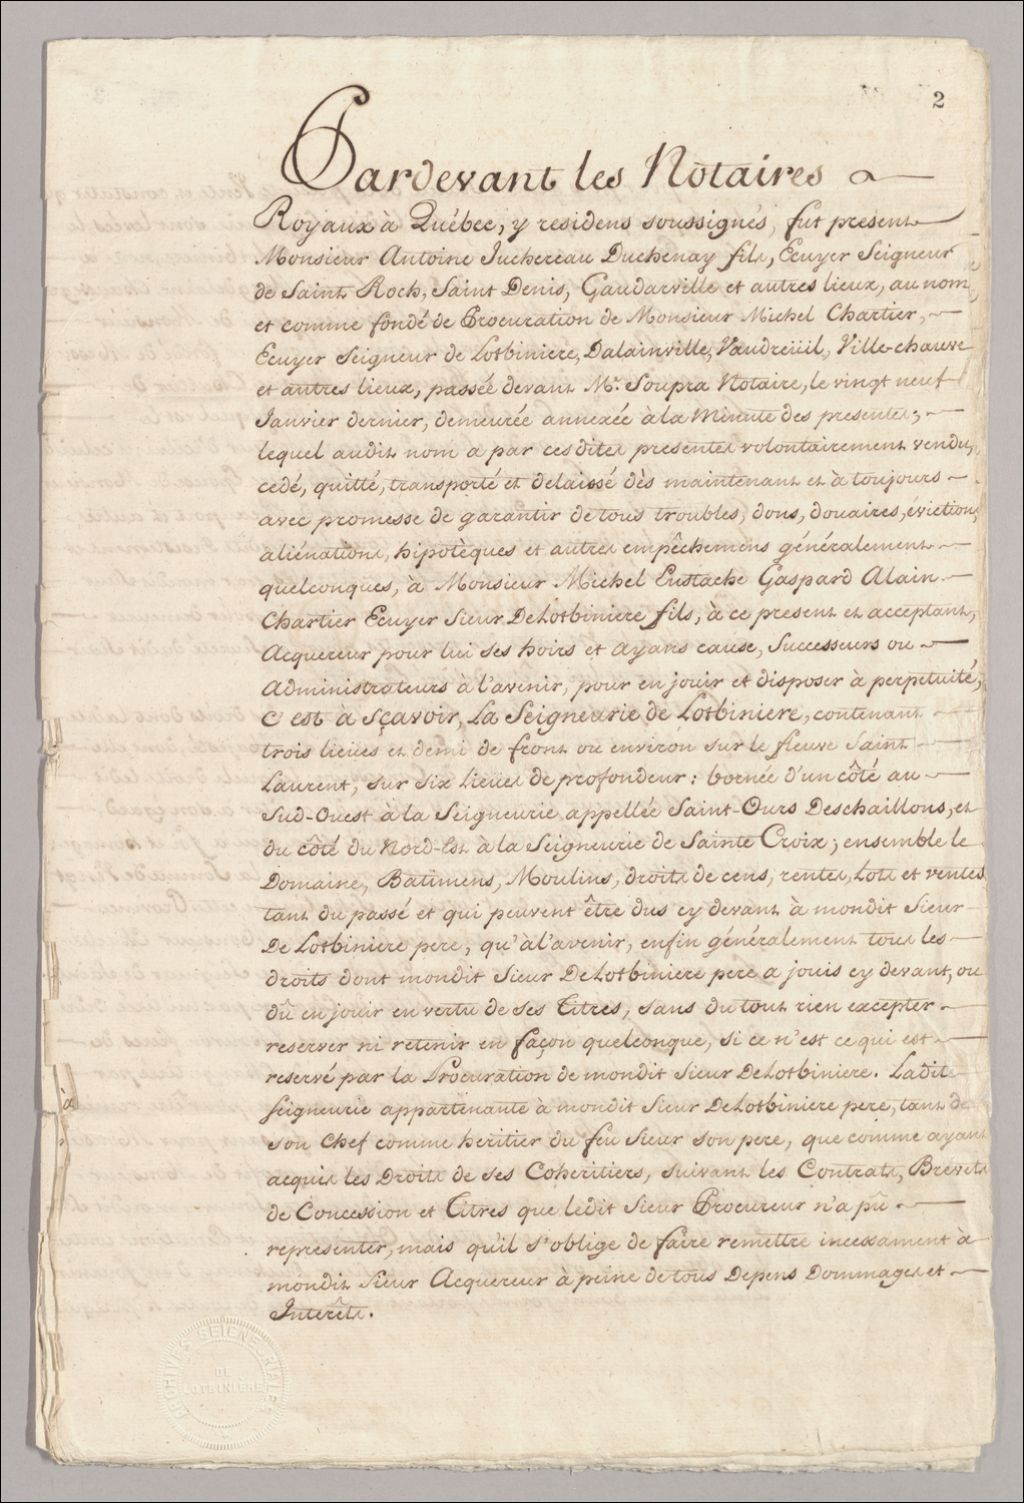 2
Pardevant les Notaires
Royaux à Québec, y residens soussignés, fut present
Monsieur Antoine Juchereau Duchenay fils, Ecuyer Seigneur
de Saint Roch, Saint Denis, Gaudarville et autres lieux, au nom
et comme fondé de Procuration de Monsieur Michel Chartier,
Ecuyer Seigneur de Lotbiniere, Dalainville, Vaudreüil, Ville-chauve
et autres lieux, passée devant Mr. Soupra Notaire, le vingt neuf
Janvier dernier, demeurée annexée à la Minute des presentes;
lequel audit nom a par ces dites presentes volontairement vendu,
cedé, quitté, transporté et delaissé dès maintenant et à toujours
avec promesse de garantir de tous troubles, dons, douaires, éviction,
aliénations, hipotèques et autres empêchemens généralement
quelconques, à Monsieur Michel Eustache Gaspard Alain
Chartier Ecuyer Sieur DeLotbiniere fils, à ce present et acceptant,
Acquereur pour lui ses hoirs et ayans cause, Successeurs ou
Administrateurs à l'avenir, pour en jouir et disposer à perpetuité,
C'est à sçavoir, La Seigneurie de Lotbiniere, contenant
trois lieües et demi de front ou environ sur le fleuve Saint
Laurent, sur six lieües de profondeur: bornée d'un côté au
Sud-Ouest à la Seigneurie appellée Saint-Ours Deschaillons, et
du côté du Nord-Est à la Seigneurie de Sainte Croix; ensemble le
Domaine, Batimens, Moulins, droits de cens, rentes, Lots et ventes
tant du passé et qui peuvent être dus cy devant à mondit Sieur
De Lotbiniere pere, qu'à l'avenir, enfin généralement tous les
droits dont mondit Sieur DeLotbiniere pere a jouis cy devant, ou
dû en jouir en vertu de ses Titres, sans du tout rien excepter
reserver ni retenir en façon quelconque, si ce n'est ce qui est
reservé par la Procuration de mondit Sieur DeLotbiniere. Ladite
Seigneurie appartenante à mondit Sieur DeLotbiniere pere, tant de
son Chef comme heritier du feu Sieur son pere, que comme ayant
acquis les Droits de ses Coheritiers, suivant les Contrats, Brevets
de Concession et Titres que ledit Sieur Procureur n'a pû
representer, mais qu'il s'oblige de faire remettre incessament à
mondit Sieur Acquereur à peine de tous Depens Dommages et
Interêts.
à
ARCHIVES SEIGNEURIALES
DE
LOTBINIÈRE